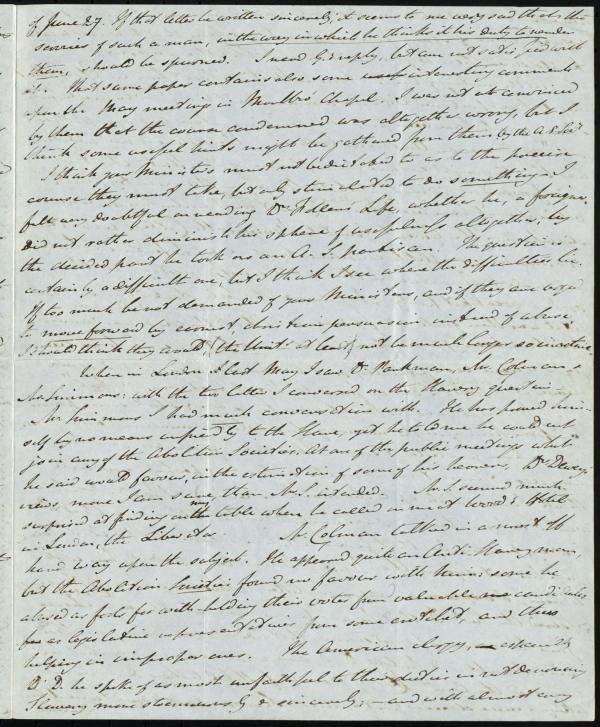 of June 27. If that letter be written sincerely, it seems to me very sad that the
services of such a man, in the way in which he thinks it his duty to render
them, should be spurned. I read G's reply, but am not satisfied with
it. That same paper contains also some interesting comments
upon the May meetings in Chapel. I was not at convinced
by them that the course condemned was altogether wrong, but I
think some useful hints might be gathered from them by the A. S.
I think your Ministers must not be dictated to as to the precise
course they must take, but only stimulated to do something. I
felt very doubtful on reading Dr Follen's Life, whether he, a foreigner,
did not rather diminish his sphere of usefulness altogether, by
the decided part he took as an A. S. partisan. The question is
certainly a difficult one, but I think I see where the difficulties lie.
If too much be not demanded of your Ministers, and if they are urged
to move forward by earnest, christian persuasion instead of abuse
I should think they would, (the Unitns at least) not be much longer so inactive.
When in London last May I saw Dr. Parkman, Mr. Colman &
Mr Simmons: with the two latter I conversed on the Slavery question
Mr Simmons I had much conversation with. He has proved him-
self by no means unfriendly to the Slave, yet he told me he could not
join any of the Abolition Societies. At one of the public meetings what
he said would favour, in the estimation of some of his hearers, Dr Dewey's
views, more I am sure, than Mr. S. intended. Mr. S. seemed much
surprised at finding on my table when he called on me at Wood's Hotel
in London, the Liberator. Mr. Colman talked in a most off
hand way upon the subject. He appeared quite an Anti-Slavery man,
but the Abolition Societies found no favour with him; some he
abused as fools for with-holding their votes from valuable candidates
as legislative representatives from some crotchet, and thus
helping in improper ones. The American clergy, especially
D. D. he spoke of as most unfaithful to their duties in not denouncing
Slavery more strenuously & sincerely; and with almost any